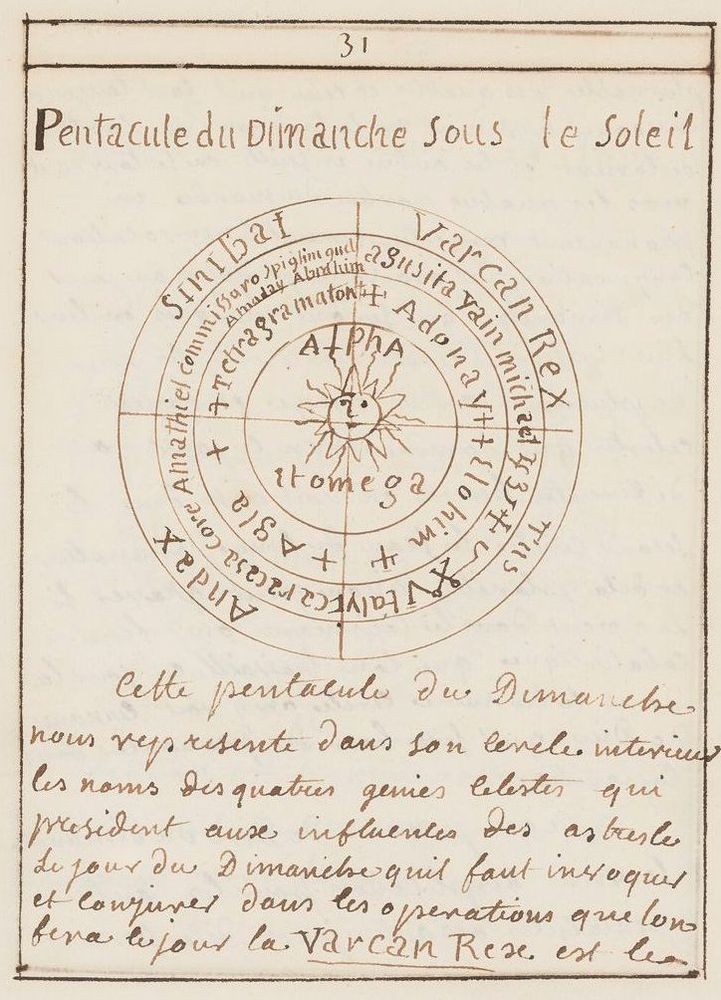 31
Pentacule du Dimanche sous le Soleil
Varcan Rex
Tus
Andax
Sinibat
agusita yain michael
Vtalyt caracasa core Amathiel commissaros
Amaday Abrahim
+ Adonay + + Elohim + + Agla + + Tetragramaton +
Alpha
et omega
Cette pentacule du Dimanche
nous represente dans son cercle interieur
les noms des quatres genies celestes qui
president aux influences des astres le
Le jour du Dimanche quil faut invoquer
et conjurer dans les operations que lon
fera le jour la Varcan Rex est le